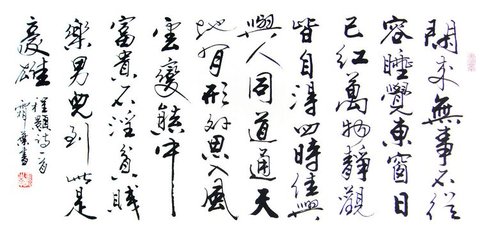 閒来無事不從
容睡覺東窗日
已紅萬物靜觀
皆自得四時佳興
與人同道通天
地有形外思入風
雲變態中
富貴不淫貧賤
樂男兒到此是
豪雄
程顥诗一首
書